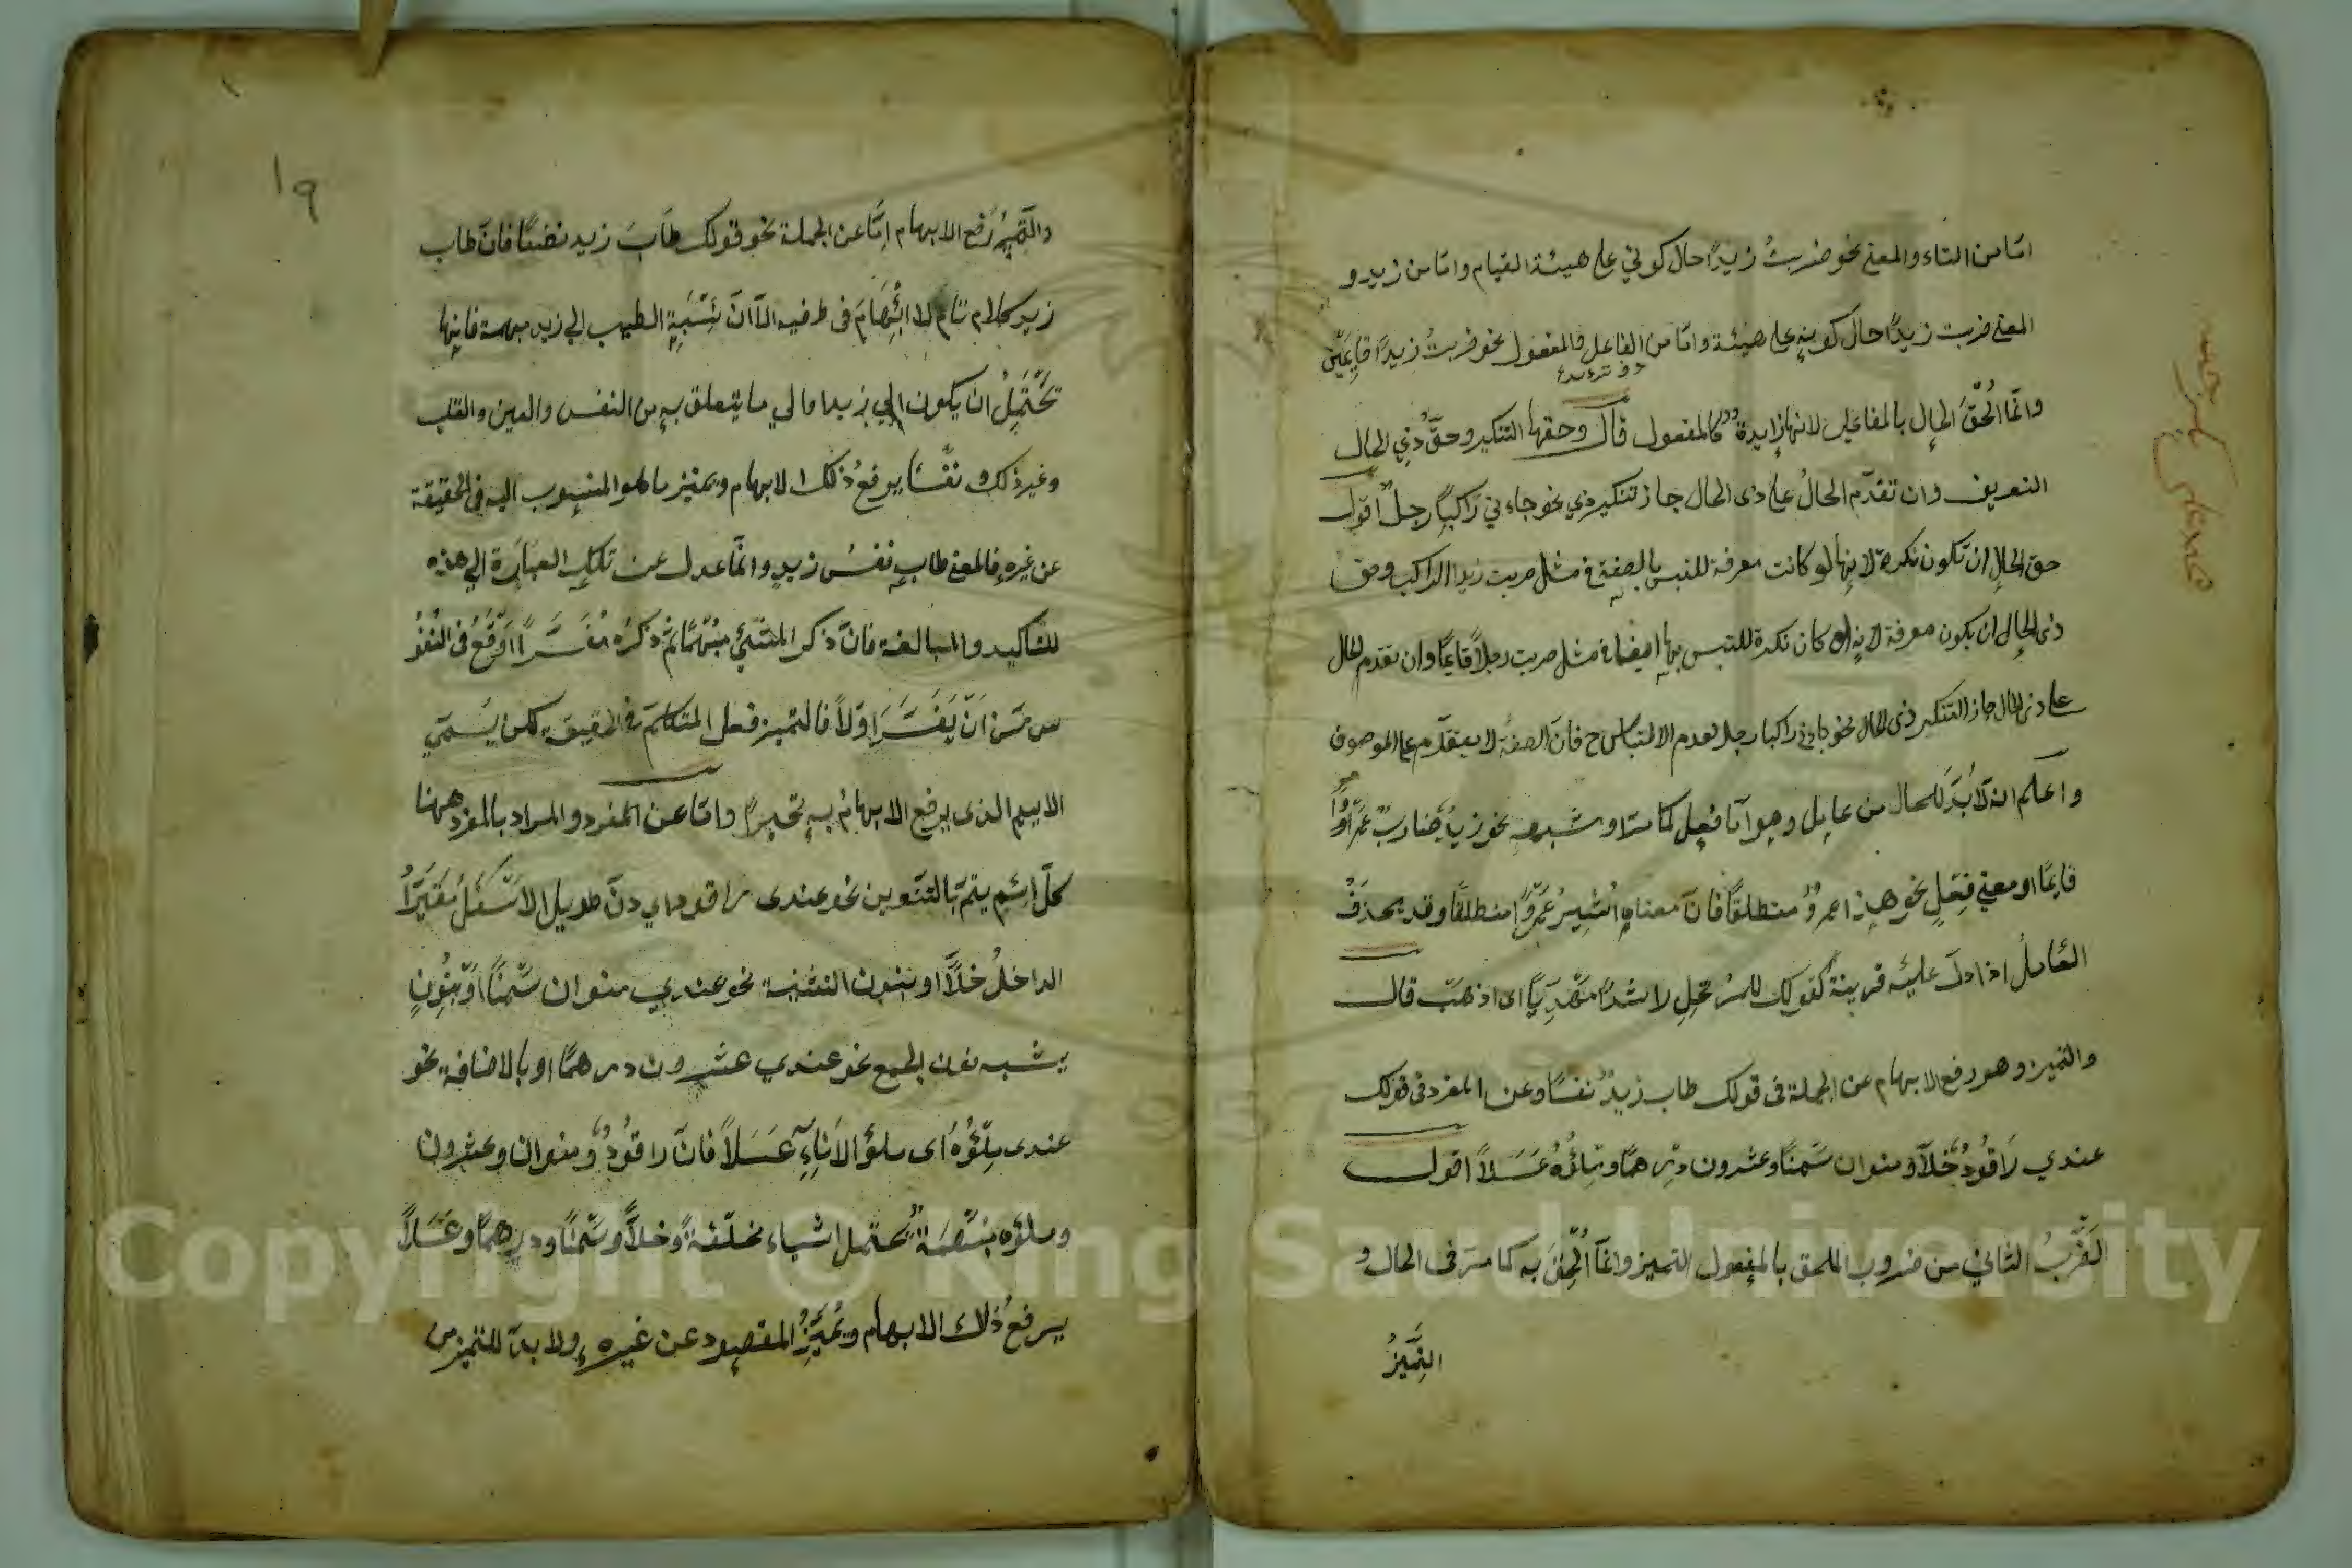 امّا من التاء والمعنى نحو ضربتُ زيدًا حال كوني على هيئة القيام وامّا من زيد و
المعنى ضربت زيدًا حال كونه على هيئة وامّا من الفاعل والمفعول نحو ضربتُ زيدًا قايمَيْن
وانّما اُلحقَ الحال بالمفاعيل لانها زايدة كالمفعول قال وحقها التنكير وحقّ ذي الحال
التعريف وان تقدّم الحالُ على ذى الحال جاز تنكير ذي نحو جاءني راكبًا رجلٌ اقول
حق الحال ان تكون نكرة لانها لو كانت معرفة للتبس بالصفة في مثل ضربت زيدا الراكب وحق
ذى الحال ان يكون معرفة لانه لو كان نكرة للتبس بها ايضا في مثل ضربت رجلاً قايمًا وان تقدم الحال
على ذى الحال جاز التنكير ذى الحال نحو جاءني راكبا رجل لعدم الالتباس ح فانّ الصفة لا يتقدّم على الموصوف
واعلم انه لا بُدّ للحال من عامل وهو امّا فعل كما مرّ او شبهه نحو زيدٌ ضاربٌ عمروًا
قايمًا او معنى فعلٍ نحو هذا عمروٌ منطلقًا فانّ معناه اُشيرُ عمروًا منطلقًا وقد يحذفُ
العاملُ اذا دلّ عليه قرينة كقولك للمرتحل راشدًا مهديًا اى اذهب قال
والتميز وهو رفع الابهام عن الجملة فى قولك طاب زيدٌ نفسًا وعن المفرد فى قولك
عندي راقُودٌ خلاًّ ومنوان سَمنًا وعشرون درهمًا وملؤُهُ عَسَلاً اقول
الضّربُ الثاني من ضروب الملحق بالمفعول التميز وانّما اُلحق به كما مرّ فى الحال و
التميزُ
19
والتميزُ رَفع الابهام امّا عن الجملة نحو قولك طابَ زيد نفسًا فانّ طاب
زيد كلام تام لا ابهامَ فى طرفيه الّا انّ نسبة الطيب الي زيد مبهمة فانها
تحتملُ ان يكون الي زيد او الي ما يتعلق به من النفس والعين والقلب
وغير ذلك ونفسًا يرفعُ ذلك الابهام ويميّز ما هو المنسوب اليه فى الحقيقة
عن غيره فالمعنى طاب نفسُ زيدٍ وانّما عدل عن تلك العبارة الى هذه
للتاكيد والمبالغة فانّ ذكر الشئ مبهمًا ثم ذكره مُفسّرًا اوقعُ فى النفوُ
س من ان يُفسَّرَ اوّلاً فالتميز فعل المتكلّم فى الحقيقة لكن يُسمّي
الاسم الذى يرفع الابهامُ به تميزًا وامّا عن المفرد والمراد بالمفرد ههنا
كلّ اسم يتمّ بالتنوين نحو عندى راقود اي دنّ طويل الاسفلُ مقيّرًا
الداخلُ خلاًّ او بنون التثنية نحو عندي منوان سَمنًا او بنُونٍ
يشبه نون الجمع نحو عندي عشرون درهمًا او بالاضافة نحو
عندى ملؤُهُ اى ملؤ الاناءِ عَسَلاً فانّ راقُودٌ ومنوان وعشرون
وملؤه مبهمةٌ يحتمل اشياء مختلفةً وخلاًّ وسَمنًا ودرهمًا وعَسَلاً
يرفعُ ذلك الابهام ويُميّزُ المقصود عن غيره ولا بدّ للتميز من
Copyright © King Saud University
1957